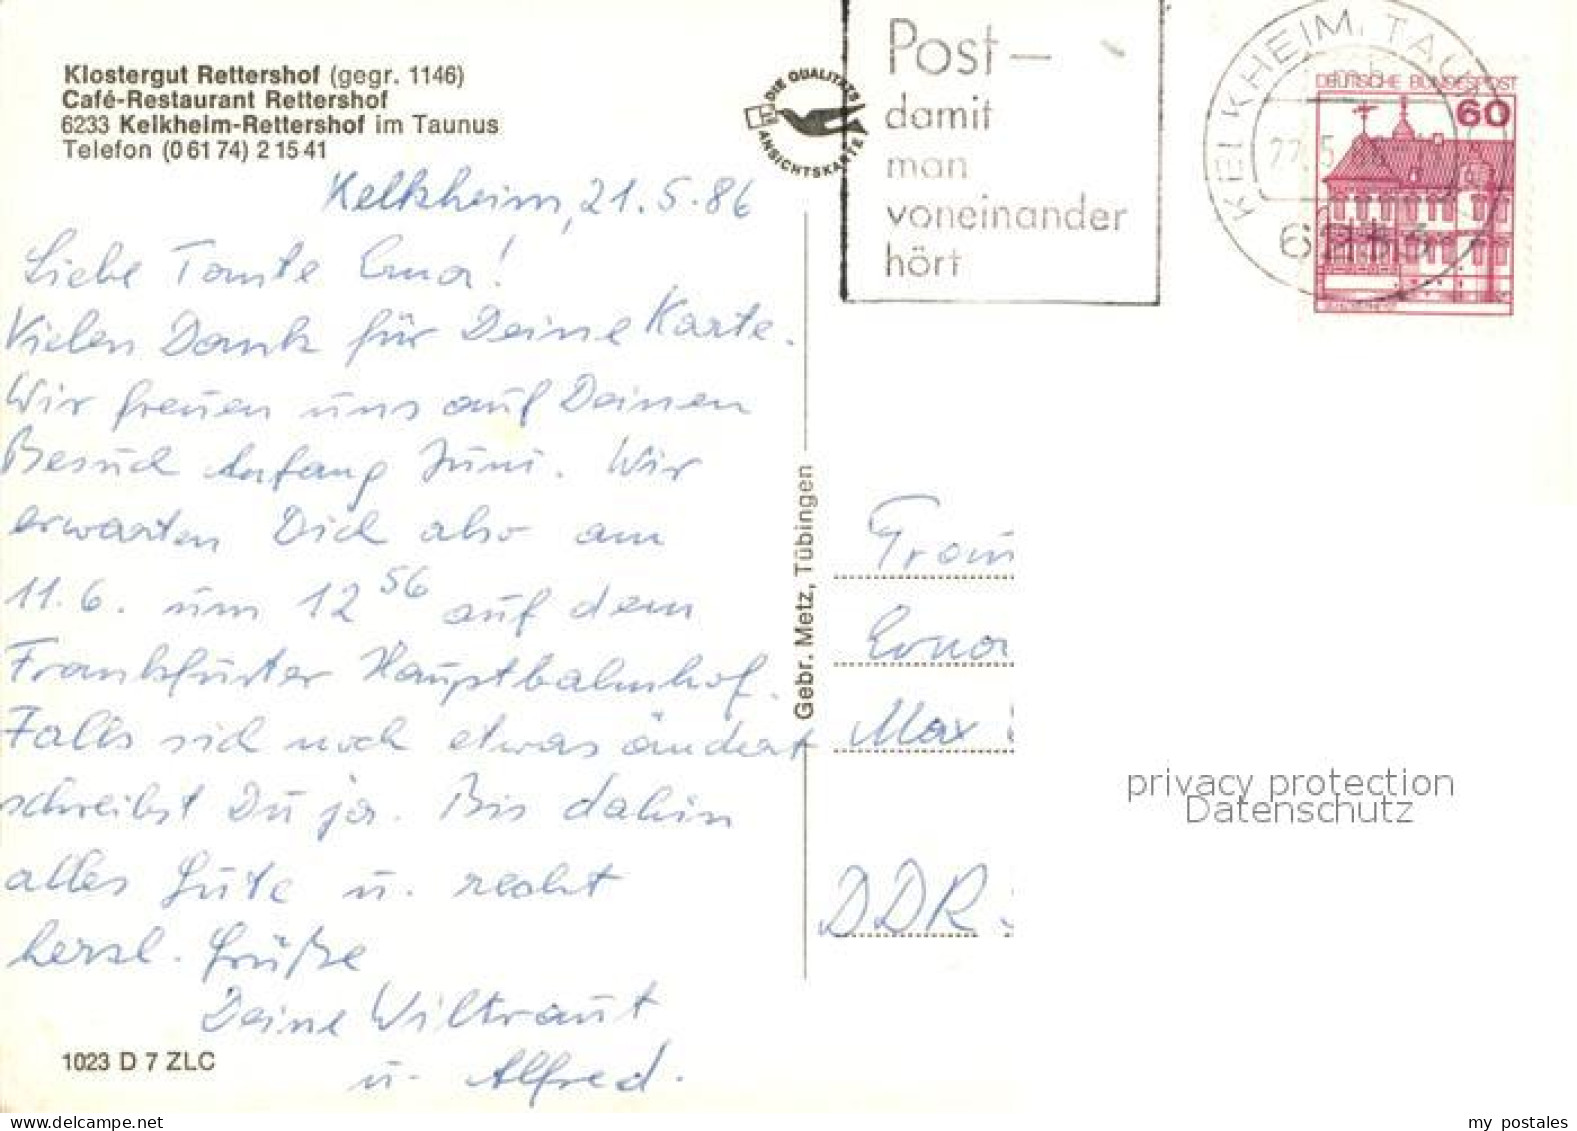 Klostergut Rettershof (gegr. 1146)
Café-Restaurant Rettershof
6233 Kelkheim-Rettershof im Taunus
Telefon (0 61 74) 2 15 41
Kelkheim, 21.5.86
Liebe Tante Erna!
Vielen Dank für Deine Karte.
Wir freuen uns auf Deinen
Besuch Anfang Juni. Wir
erwarten Dich also am
11.6. um 12 56 auf dem
Frankfurter Hauptbahnhof.
Falls sich noch etwas ändert
schreibst Du ja. Bis dahin
alles Gute u. recht
herzl. Grüße
Deine Wiltraut
u. Alfred.
1023 D 7 ZLC
DIE QUALITÄTS
ANSICHTSKARTE
Gebr. Metz, Tübingen
Post–
damit
man
voneinander
hört
KELKHEIM, TAUNUS
mb
DEUTSCHE BUNDESPOST
60
Frau
Erna
Max
DDR-
privacy protection
Datenschutz
my postales